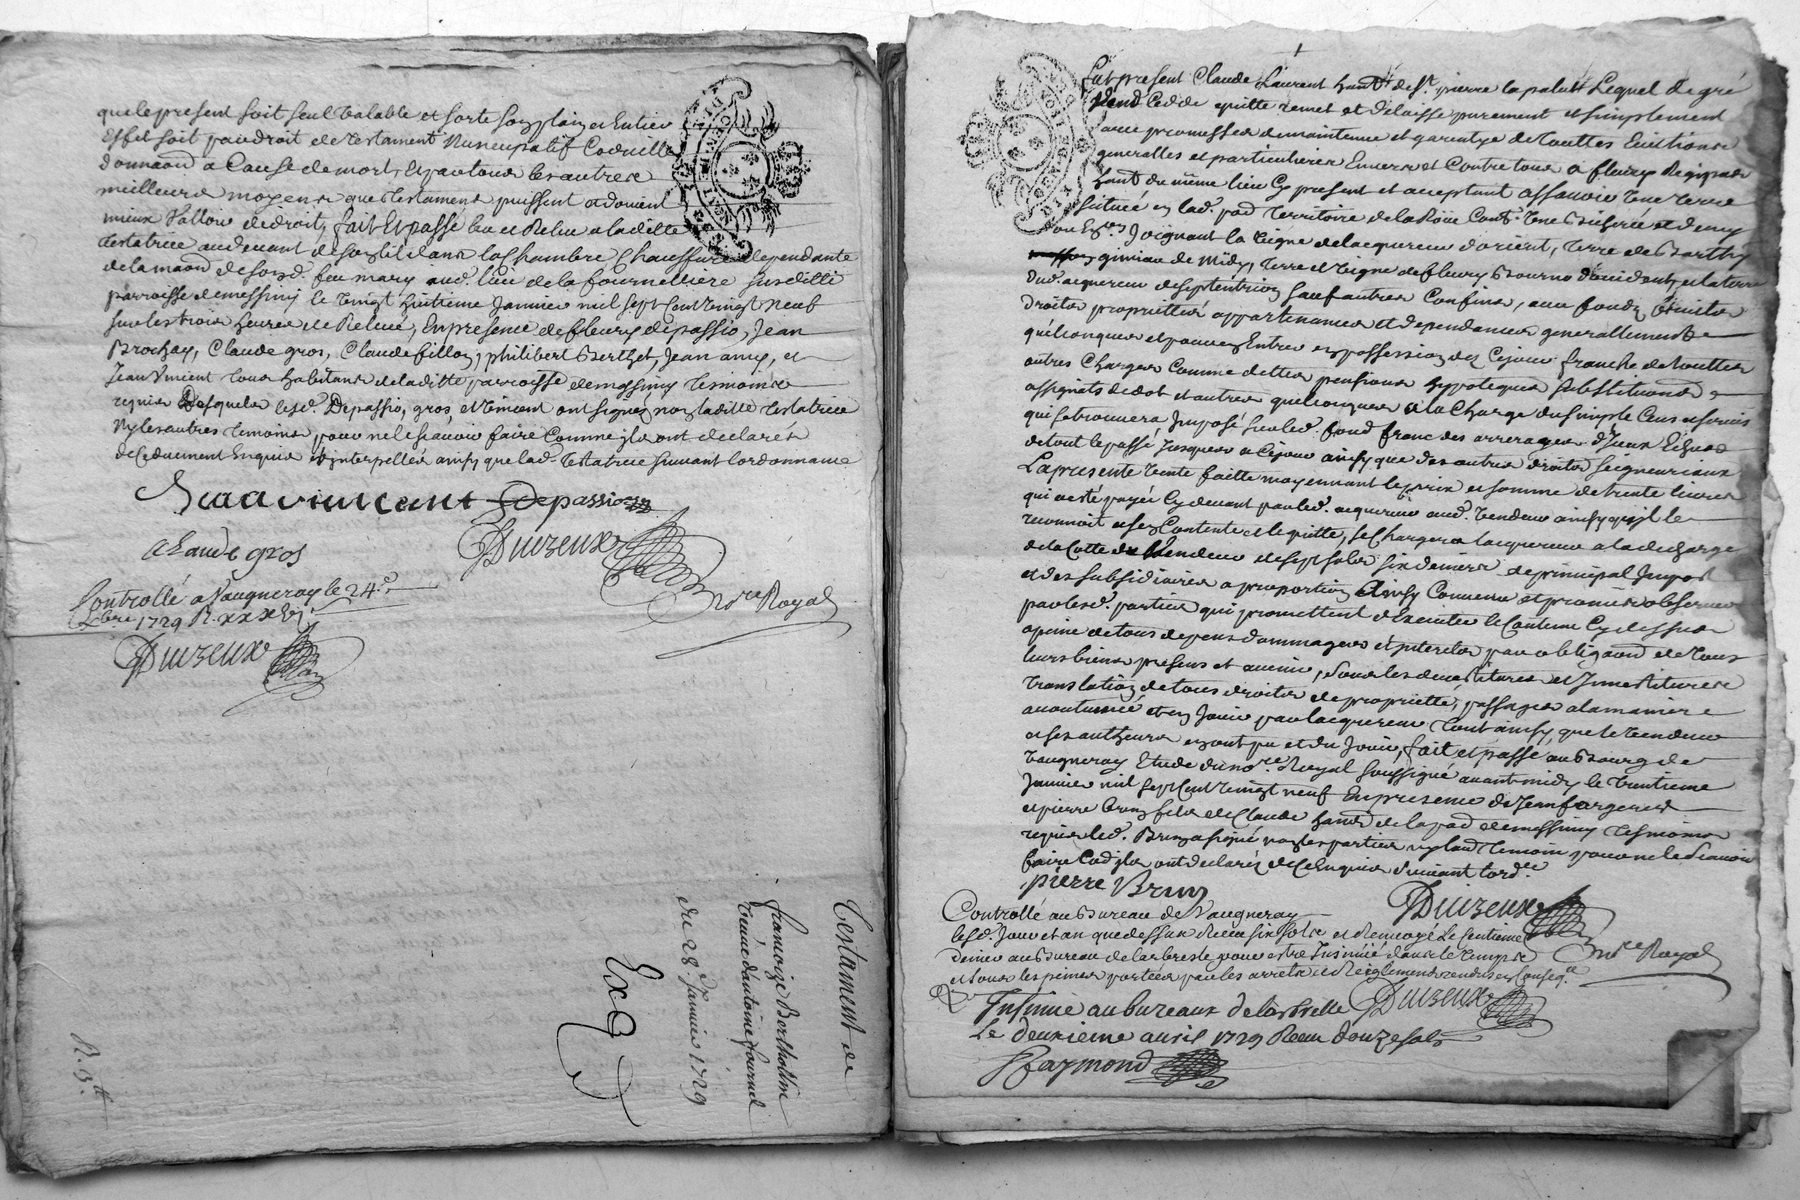 que le present soit seul valable et sorte son plain et Entier
Effet soit par droit de testament Nuncupatif Codicille
donnaon a Cause de mort, et par tous les autres
meilleurs moyens que testament puissent et doivent
mieux valloir de droit, fait Et passé leu et Releu a laditte
testatrice au devant de son lit dans la Chambre Chauffure dependante
de la maon de sond. feu mary aud. lieu de la fournelliere susditte
parroisse de messimy le vingt huitieme Janvier mil sept Cent vingt neuf
sur les trois heures de Relevé, En presence de fleury depassio, Jean
Brochay, Claude gros, Claude fillon, philibert Berthet, Jean amy, et
Jean Vincent tous habitans de laditte parroisse de messimy tesmoins
requis Desquels lesd. Depassio, gros, et Vincent ont signé non laditte testatrice
Ny les autres temoins pour ne le scavoir faire Comme ils ont declarés
de Ce duement Enquis et Interpellés ainsy que lad. testatrice suivant lordonnance
Jean vincent Depassio
Claude gros
Duizeux
nore Royal
Controllé a Vaugneray le 24e
Xbre 1729 R. xxx
Duizeux
Testament de
francoize Berthollon
veuve d'antoine fournel
du 28 Janvier 1729
Exg
R. 3tt
fut present Claude Laurent habt de St pierre la palud Lequel de gré
Vend Cedde quitte remet et delaisse purement et simplement
avec promesses de maintenue et garentye de touttes Evictions
generalles et particulieres Envers et Contre tous a fleury
habt du même lieu Cy present et acceptant assavoir Une terre
située en lad. pad territoire de la Rüe Cont. Une Bicherée et demy
ou En. Joignant la vigne de lacquereur d'orient, terre de Barthy
giniau de Midy, terre et vigne de fleury Bourne d'occident, et la terre
dud. acquereur de septentrion sauf autres Confins, avec fondz
droits proprietés appartenances et dependances generallement
quelconques et pour en Entrer en possession dez Cejour franche de touttes
autres Charges Comme dettes pensions hypoteques substitutions
assignats de dot et autres quelconques a la Charge du simple Cens et servis
qui se trouvera Imposé sur led. fond franc des arrerages d'Iceux
de tout le passé Jusques a Cejour ainsy que des autres droits seigneuriaux
La presente vente faitte moyennant le prix et somme de trente livres
qui a esté payée Cy devant par led. acquereur aud. vendeur ainsy qu'il le
reconnoit et s'en Contente et le quitte, se Chargera lacquereur a la decharge
de la Cotte du vendeur de sept sols six deniers de principal Impos
et des subsidiaires a proportion Ainsy Convenu et promis observer
par lesd. parties qui promettent d'Executer le Contenu Cy dessus
a peine de tous depens dommages et interets par obligaon de tous
leurs biens presens et avenir, sous les devestitures et Investitures
translation de tous droits de proprietté, passages a la maniere
accoutumée et en Jouir par lacquereur tout ainsy, que le vendeur
et ses autheurs en ont pu et du Jouir, fait et passé au Bourg de
Vaugneray Etude du nore Royal soussigné avant midy le trentieme
Janvier mil sept Cent vingt neuf En presence de Jean fargere
et pierre Brun fils de Claude habt de la pad de messimy tesmoins
requis led. Brun a signé non les parties ny laud. temoin pour ne le scavoir
faire Cad. ils ont declarés de Ce Enquis suivant lordce
pierre Brun
Duizeux
nore Royal
Controllé au Bureau de Vaugneray
lesd. Jour et an que dessus Receu six sols et Renvoyé Le Centieme
denier au Bureau de larbresle pour estre Insinué dans le temps
et sous les peines portées par les arrets et Reglements rendus en Conseqce
Duizeux
Insinué au bureaux de larbrelle
Le deuxieme avril 1729 Receu douze sols
Raymond